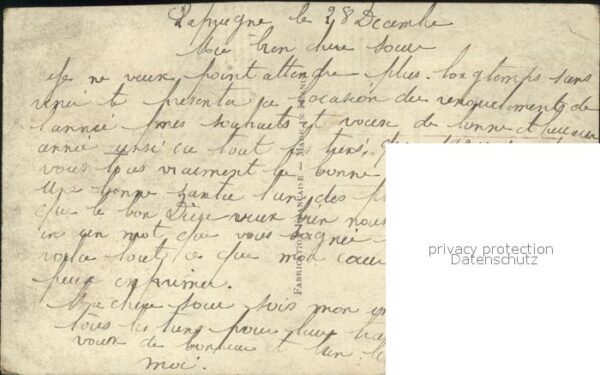 le 28 Decembre
Ma bien chere soeur
Je ne veux point attendre plus longtemps sans
venir te presenter a l'ocasion du renouvellement de
l'année mes souhaits et voeux de bonne et heureuse
année ainsi ca tout les tiens,
vous tous vraiment la bonne
Une bonne santé l'un des
que le bon Dieu veux bien nous
en un mot que vous
voila tout ce que mon coeur
peux exprimer.
Ma chere soeur sois mon
tous les tiens pour leur
voeux de bonheur et
moi.
FABRICATION FRANÇAISE — MADE IN FRANCE
privacy protection
Datenschutz